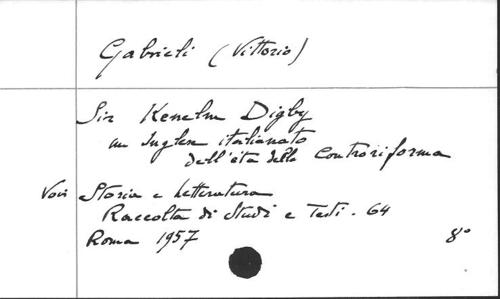 Gabrieli (Vittorio)
Sir Kenelm Digby
un Inglese italianato
dell'età della Controriforma
Voci Storia e Letteratura
Raccolta di Studi e Testi. 64
Roma 1957 8°